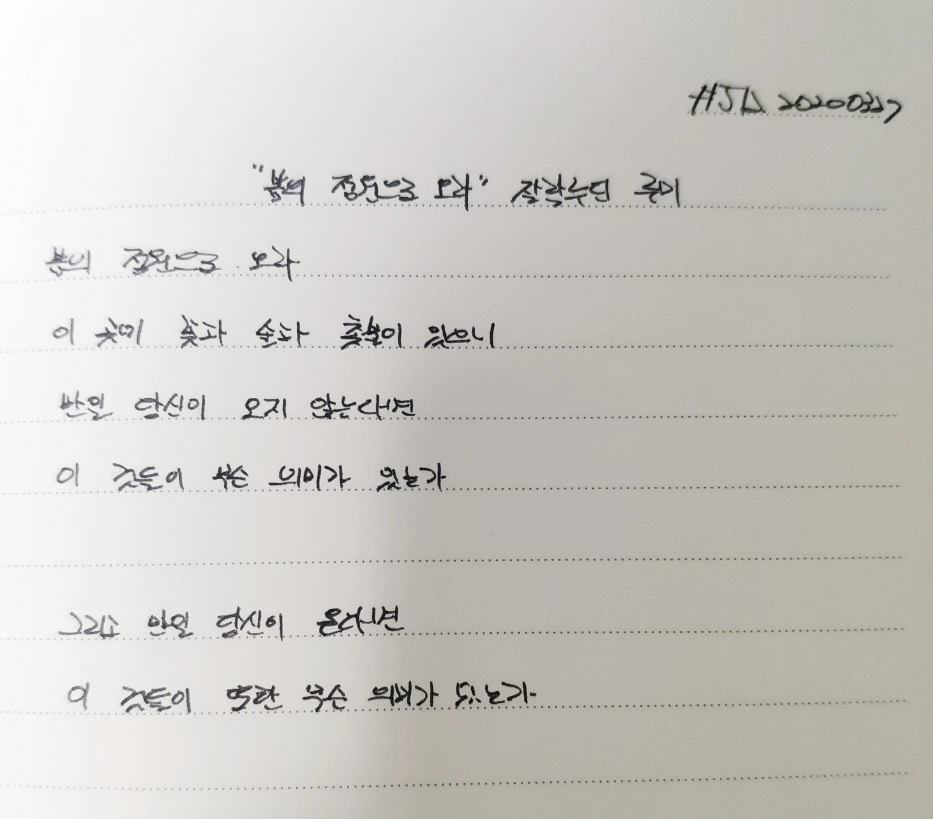 HJD 20200327
"봄의 정원으로 오라" 잘랄루딘 루미
봄의 정원으로 오라
이 곳에 꽃과 술과 촛불이 있으니
만일 당신이 오지 않는다면
이 것들이 무슨 의미가 있는가
그리고 만일 당신이 온다면
이 것들이 또한 무슨 의미가 있는가